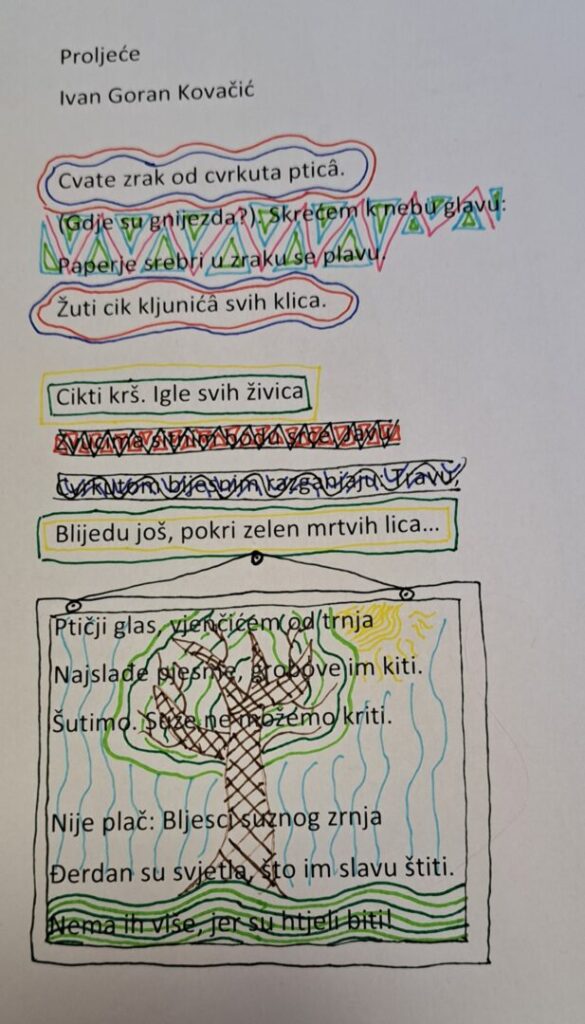 Proljeće
Ivan Goran Kovačić
Cvate zrak od cvrkuta pticâ.
(Gdje su gnijezda?). Skrećem k nebu glavu:
Paperje srebri u zraku se plavu.
Žuti cik kljunićâ svih klica.
Cikti krš. Igle svih živica
Zvucima sitnim bodu srce. Javu
Cvrkutom bljesnim razgabljaju: Travu,
Blijedu još, pokri zelen mrtvih lica...
Ptičji glas, vjenčićem od trnja
Najslađe pjesme, grobove im kiti.
Šutimo. Suze ne možemo kriti.
Nije plač: Bljesci suznog zrnja
Đerdan su svjetla, što im slavu štiti.
Nema ih više, jer su htjeli biti!